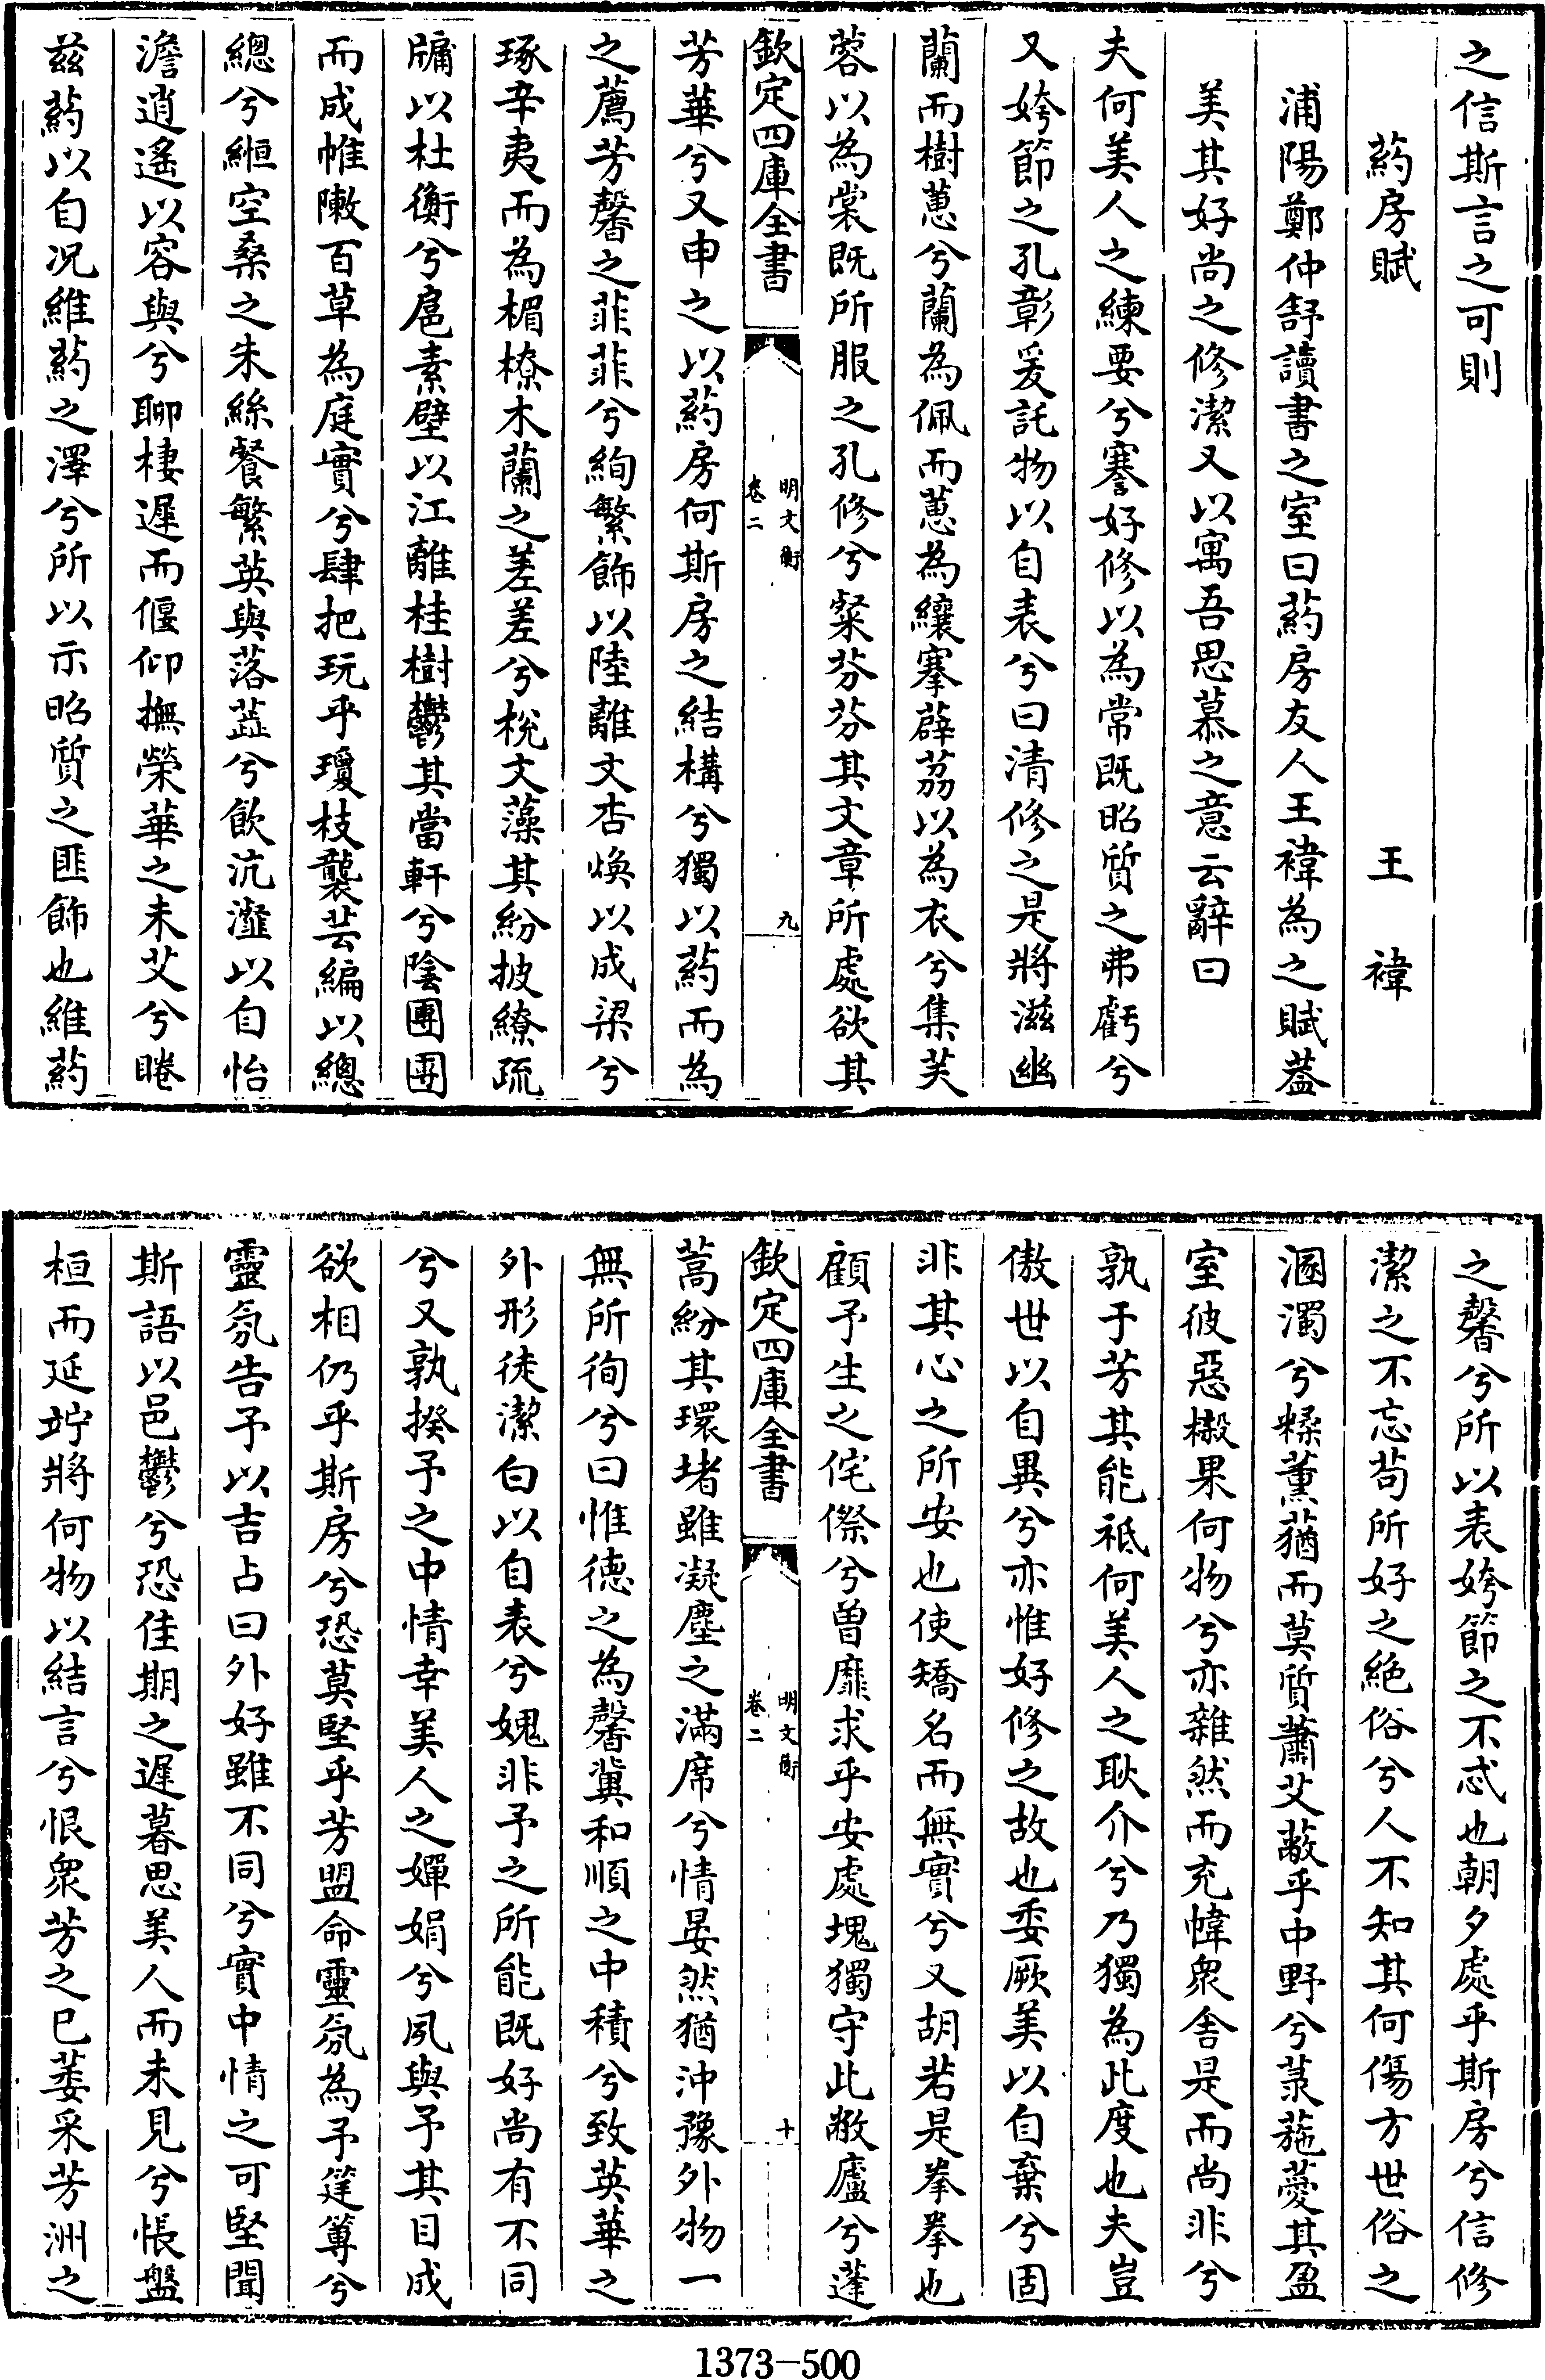 之信斯言之可則
葯房賦 王褘
浦陽鄭仲舒讀書之室曰葯房友人王褘為之賦葢
美其好尚之修潔又以寓吾思慕之意云辭曰
夫何美人之練要兮謇好修以為常既昭質之弗虧兮
又姱節之孔彰爰託物以自表兮曰清修之是將滋幽
蘭而樹蕙兮蘭為佩而蕙為纕搴薜茘以為衣兮集芙
蓉以為裳既所服之孔修兮粲芬芬其文章所處欲其
欽定四庫全書
明文衡
卷二
九
芳華兮又申之以葯房何斯房之結構兮獨以葯而為
之薦芳馨之菲菲兮絢繁飾以陸離文杏煥以成梁兮
琢辛夷而為楣橑木蘭之差差兮梲文藻其紛披繚疏
牖以杜衡兮扈素壁以江離桂樹鬱其當軒兮陰團團
而成帷敶百草為庭實兮肆把玩乎瓊枝襲芸編以總
總兮緪空桑之朱絲餐繁英與落蘂兮飲沆瀣以自怡
澹逍遙以容與兮聊棲遲而偃仰撫榮華之未艾兮睠
兹葯以自况維葯之澤兮所以示昭質之匪飾也維葯
之馨兮所以表姱節之不忒也朝夕處乎斯房兮信修
潔之不忘茍所好之絶俗兮人不知其何傷方世俗之
溷濁兮糅薰蕕而莫質蕭艾蔽乎中野兮菉葹薆其盈
室彼惡樧果何物兮亦雜然而充幃衆舎是而尚非兮
孰于芳其能祗何美人之耿介兮乃獨為此度也夫豈
傲世以自異兮亦惟好修之故也委厥美以自棄兮固
非其心之所安也使矯名而無實兮又胡若是拳拳也
顧予生之侘傺兮曾靡求乎安處塊獨守此敝廬兮蓬
欽定四庫全書
明文衡
卷二
十
蒿紛其環堵雖凝塵之滿席兮情晏然猶沖豫外物一
無所徇兮曰惟德之為馨冀和順之中積兮致英華之
外形徒潔白以自表兮媿非予之所能既好尚有不同
兮又孰揆予之中情幸美人之嬋娟兮夙與予其目成
欲相仍乎斯房兮恐莫堅乎芳盟命靈氛為予筳篿兮
靈氛告予以吉占曰外好雖不同兮實中情之可堅聞
斯語以邑鬱兮恐佳期之遲暮思美人而未見兮悵盤
桓而延竚將何物以結言兮恨衆芳之已萎采芳洲之
1373-500